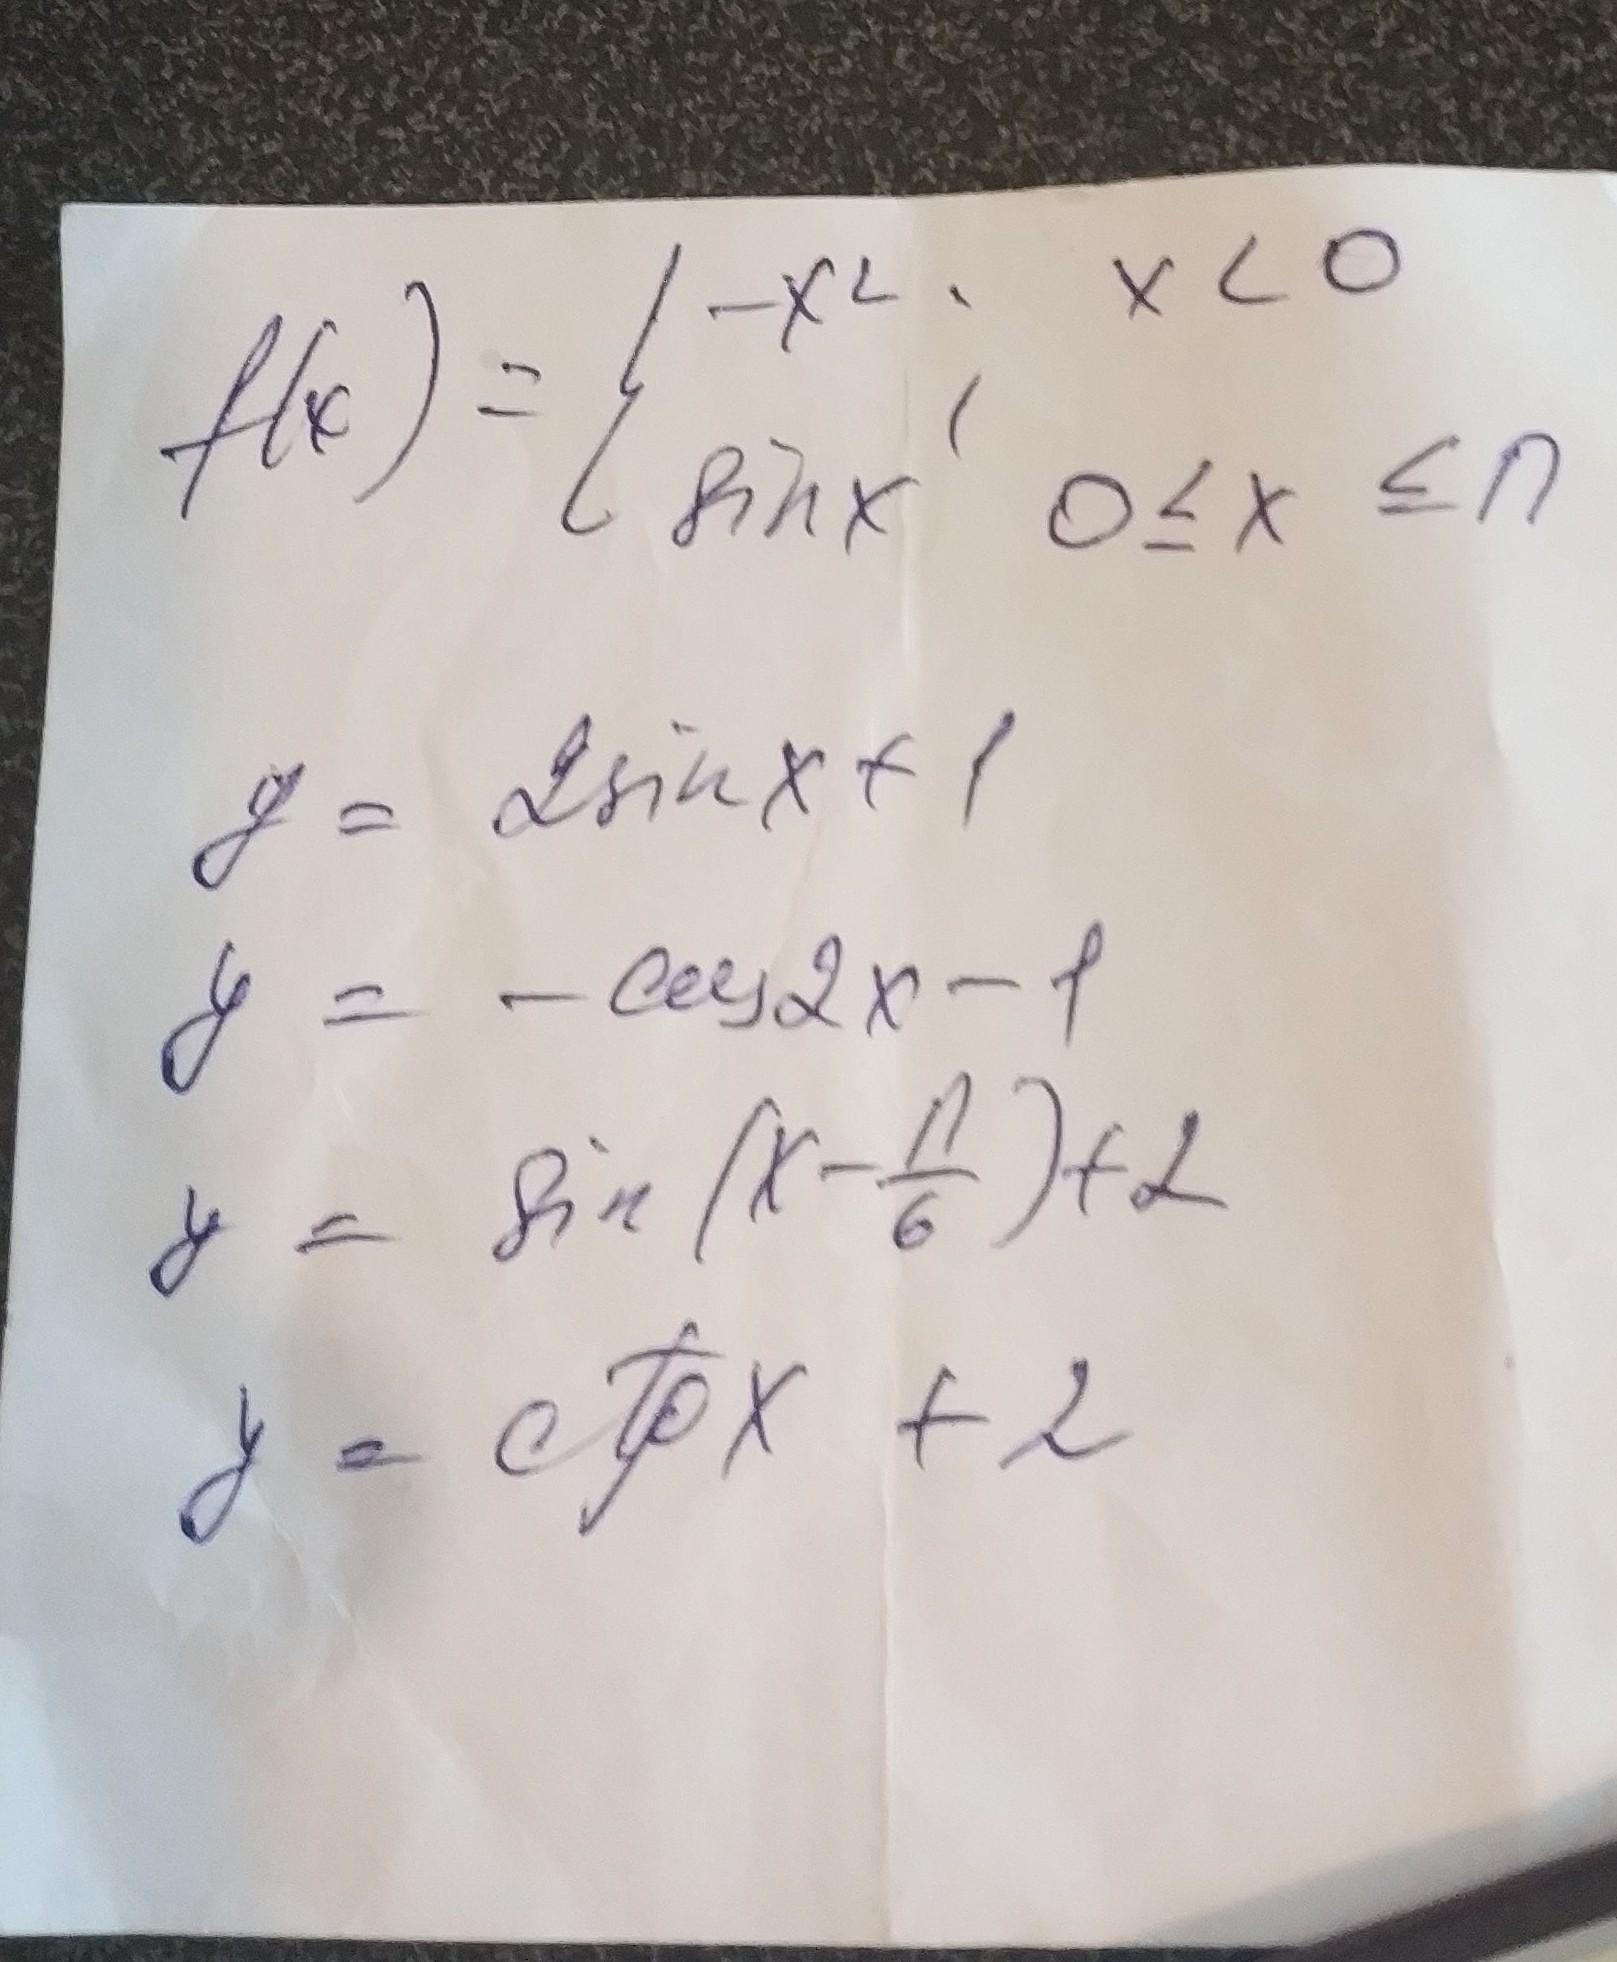 f(x) = { -x², x < 0
sin x, 0 ≤ x ≤ π
y = 2sin x + 1
y = - cos 2x - 1
y = sin (x - π/6) + 2
y = ctg x + 2